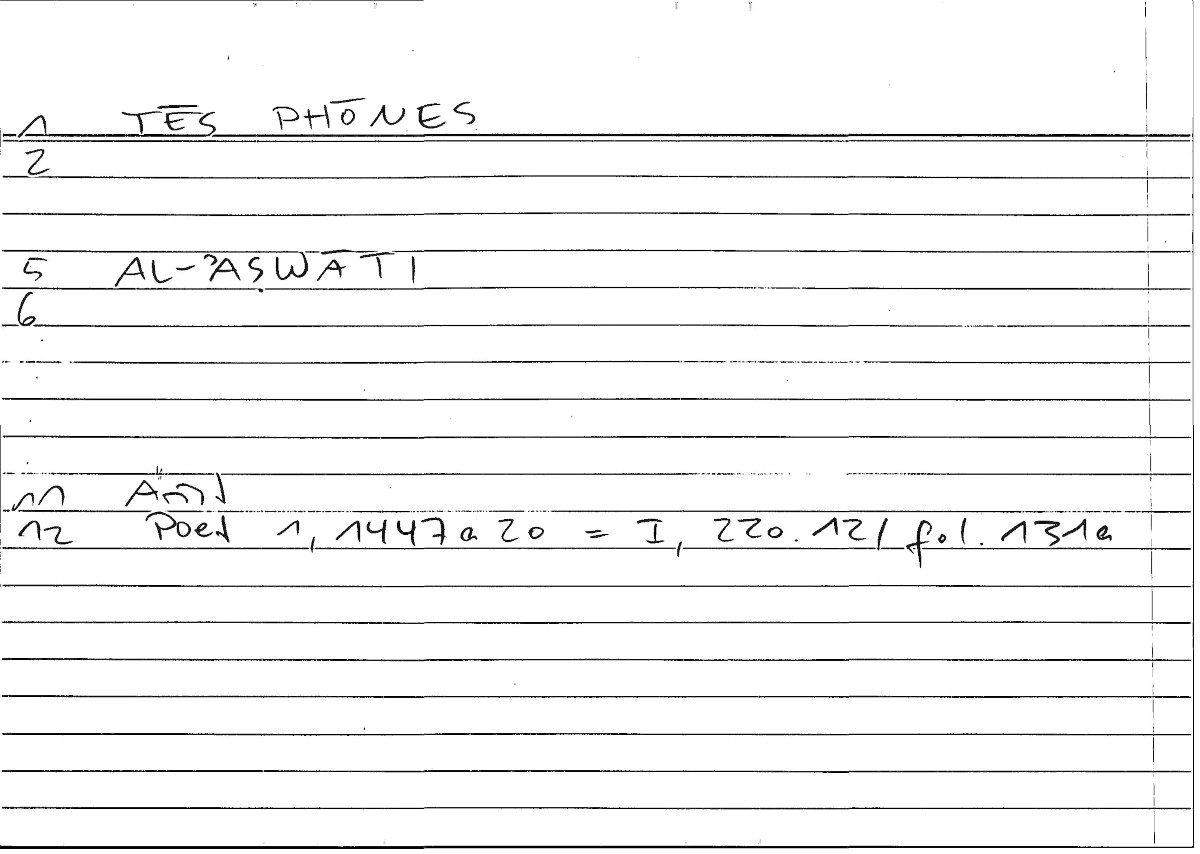 1 TĒS PHŌNES
2
5 AL-ʾAṢWĀTI
6
11 Arist
12 Poet 1, 1447a20 = I, 220.12 / fol. 131a